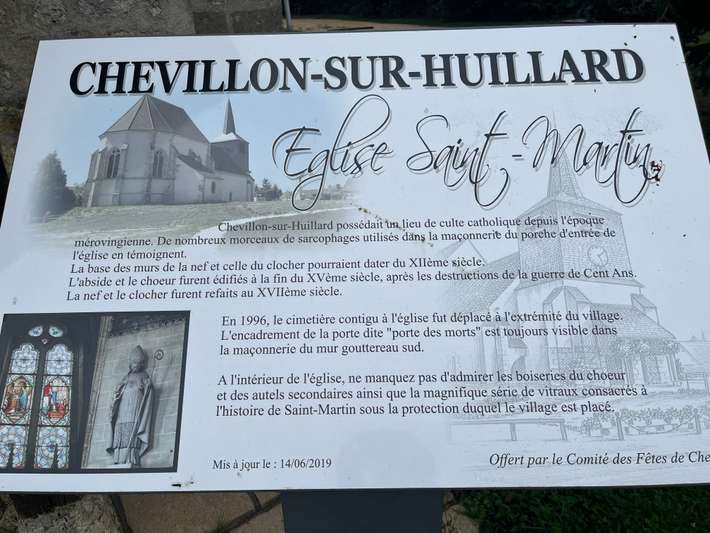 CHEVILLON-SUR-HUILLARD
Eglise Saint-Martin
Chevillon-sur-Huillard possédait un lieu de culte catholique depuis l'époque
mérovingienne. De nombreux morceaux de sarcophages utilisés dans la maçonnerie du porche d'entrée de
l'église en témoignent.
La base des murs de la nef et celle du clocher pourraient dater du XIIème siècle.
L'abside et le choeur furent édifiés à la fin du XVème siècle, après les destructions de la guerre de Cent Ans.
La nef et le clocher furent refaits au XVIIème siècle.
En 1996, le cimetière contigu à l'église fut déplacé à l'extrémité du village.
L'encadrement de la porte dite "porte des morts" est toujours visible dans
la maçonnerie du mur gouttereau sud.
A l'intérieur de l'église, ne manquez pas d'admirer les boiseries du choeur
et des autels secondaires ainsi que la magnifique série de vitraux consacrés à
l'histoire de Saint-Martin sous la protection duquel le village est placé.
Mis à jour le : 14/06/2019
Offert par le Comité des Fêtes de Che